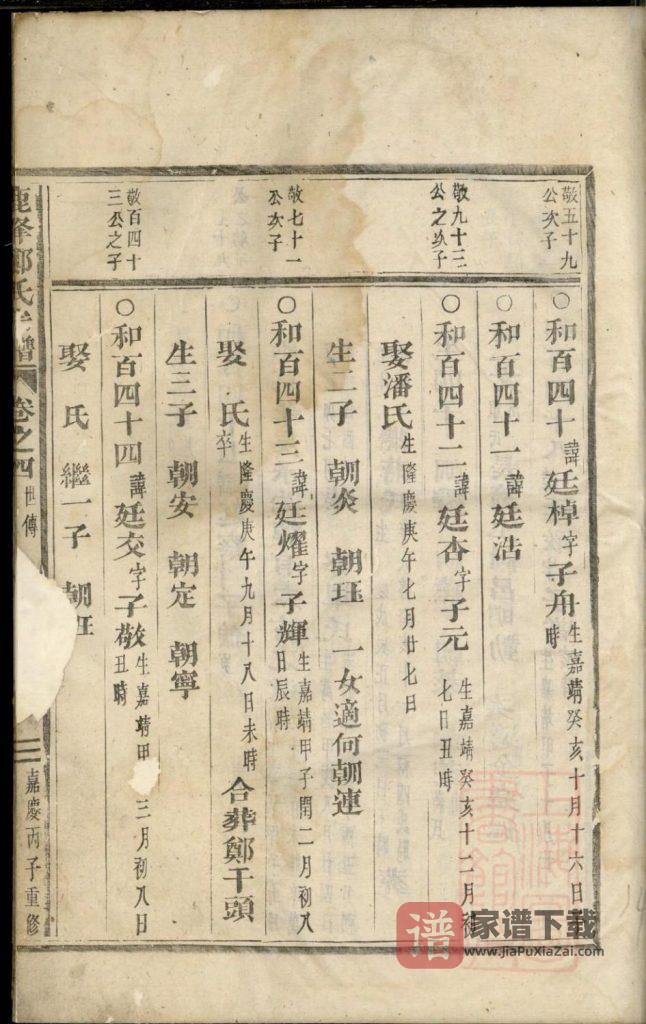 敬五十九
公次子
○和百四十諱廷棹字子舟生嘉靖癸亥十月十六日
時
○和百四十一諱廷浩
敬九十三
公之次子
○和百四十二諱廷杏字子元生嘉靖癸亥十二月初
七日丑時
娶潘氏生隆慶庚午七月廿七日
生二子 朝炎 朝珏 一女適何朝連
敬七十一
公次子
○和百四十三諱廷燿字子輝生嘉靖甲子閏二月初八
日辰時
娶 氏生隆慶庚午九月十八日未時 合葬鄭干頭
卒
生三子 朝安 朝定 朝寧
敬百四十
三公之子
○和百四十四諱廷交字子敬生嘉靖甲 三月初八日
丑時
娶 氏 繼一子 朝珏
鹿峯鄭氏 譜 卷之四 世傳
三 嘉慶丙子重修
谱 家谱下载
www.jiaPuXiaZai.com